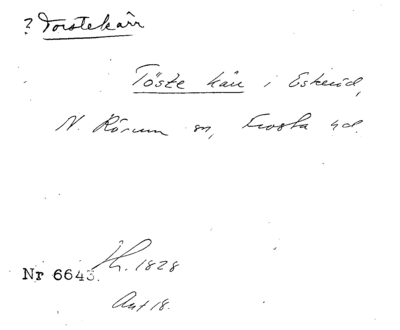 ? Torstekärr
Töste kärr i Eskeröd,
N. Rörum sn, Frosta hd.
Nr 6643. Th. 1828
Ant 18.